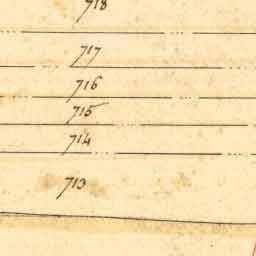 718
717
716
715
714
713